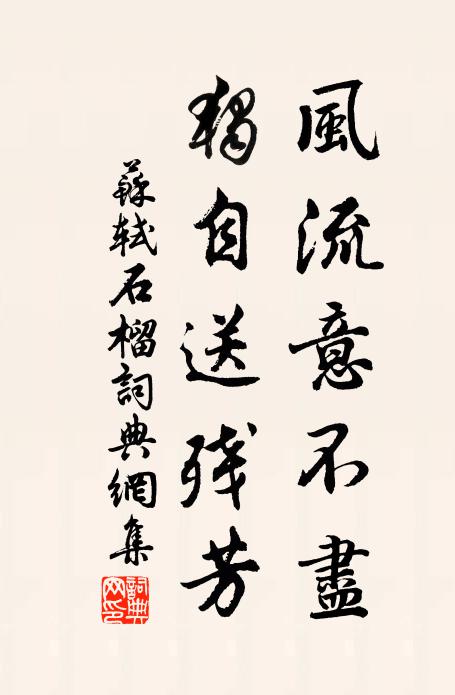 風流意不盡
獨自送残芳
蘇軾石榴詞典網集
詞典网印